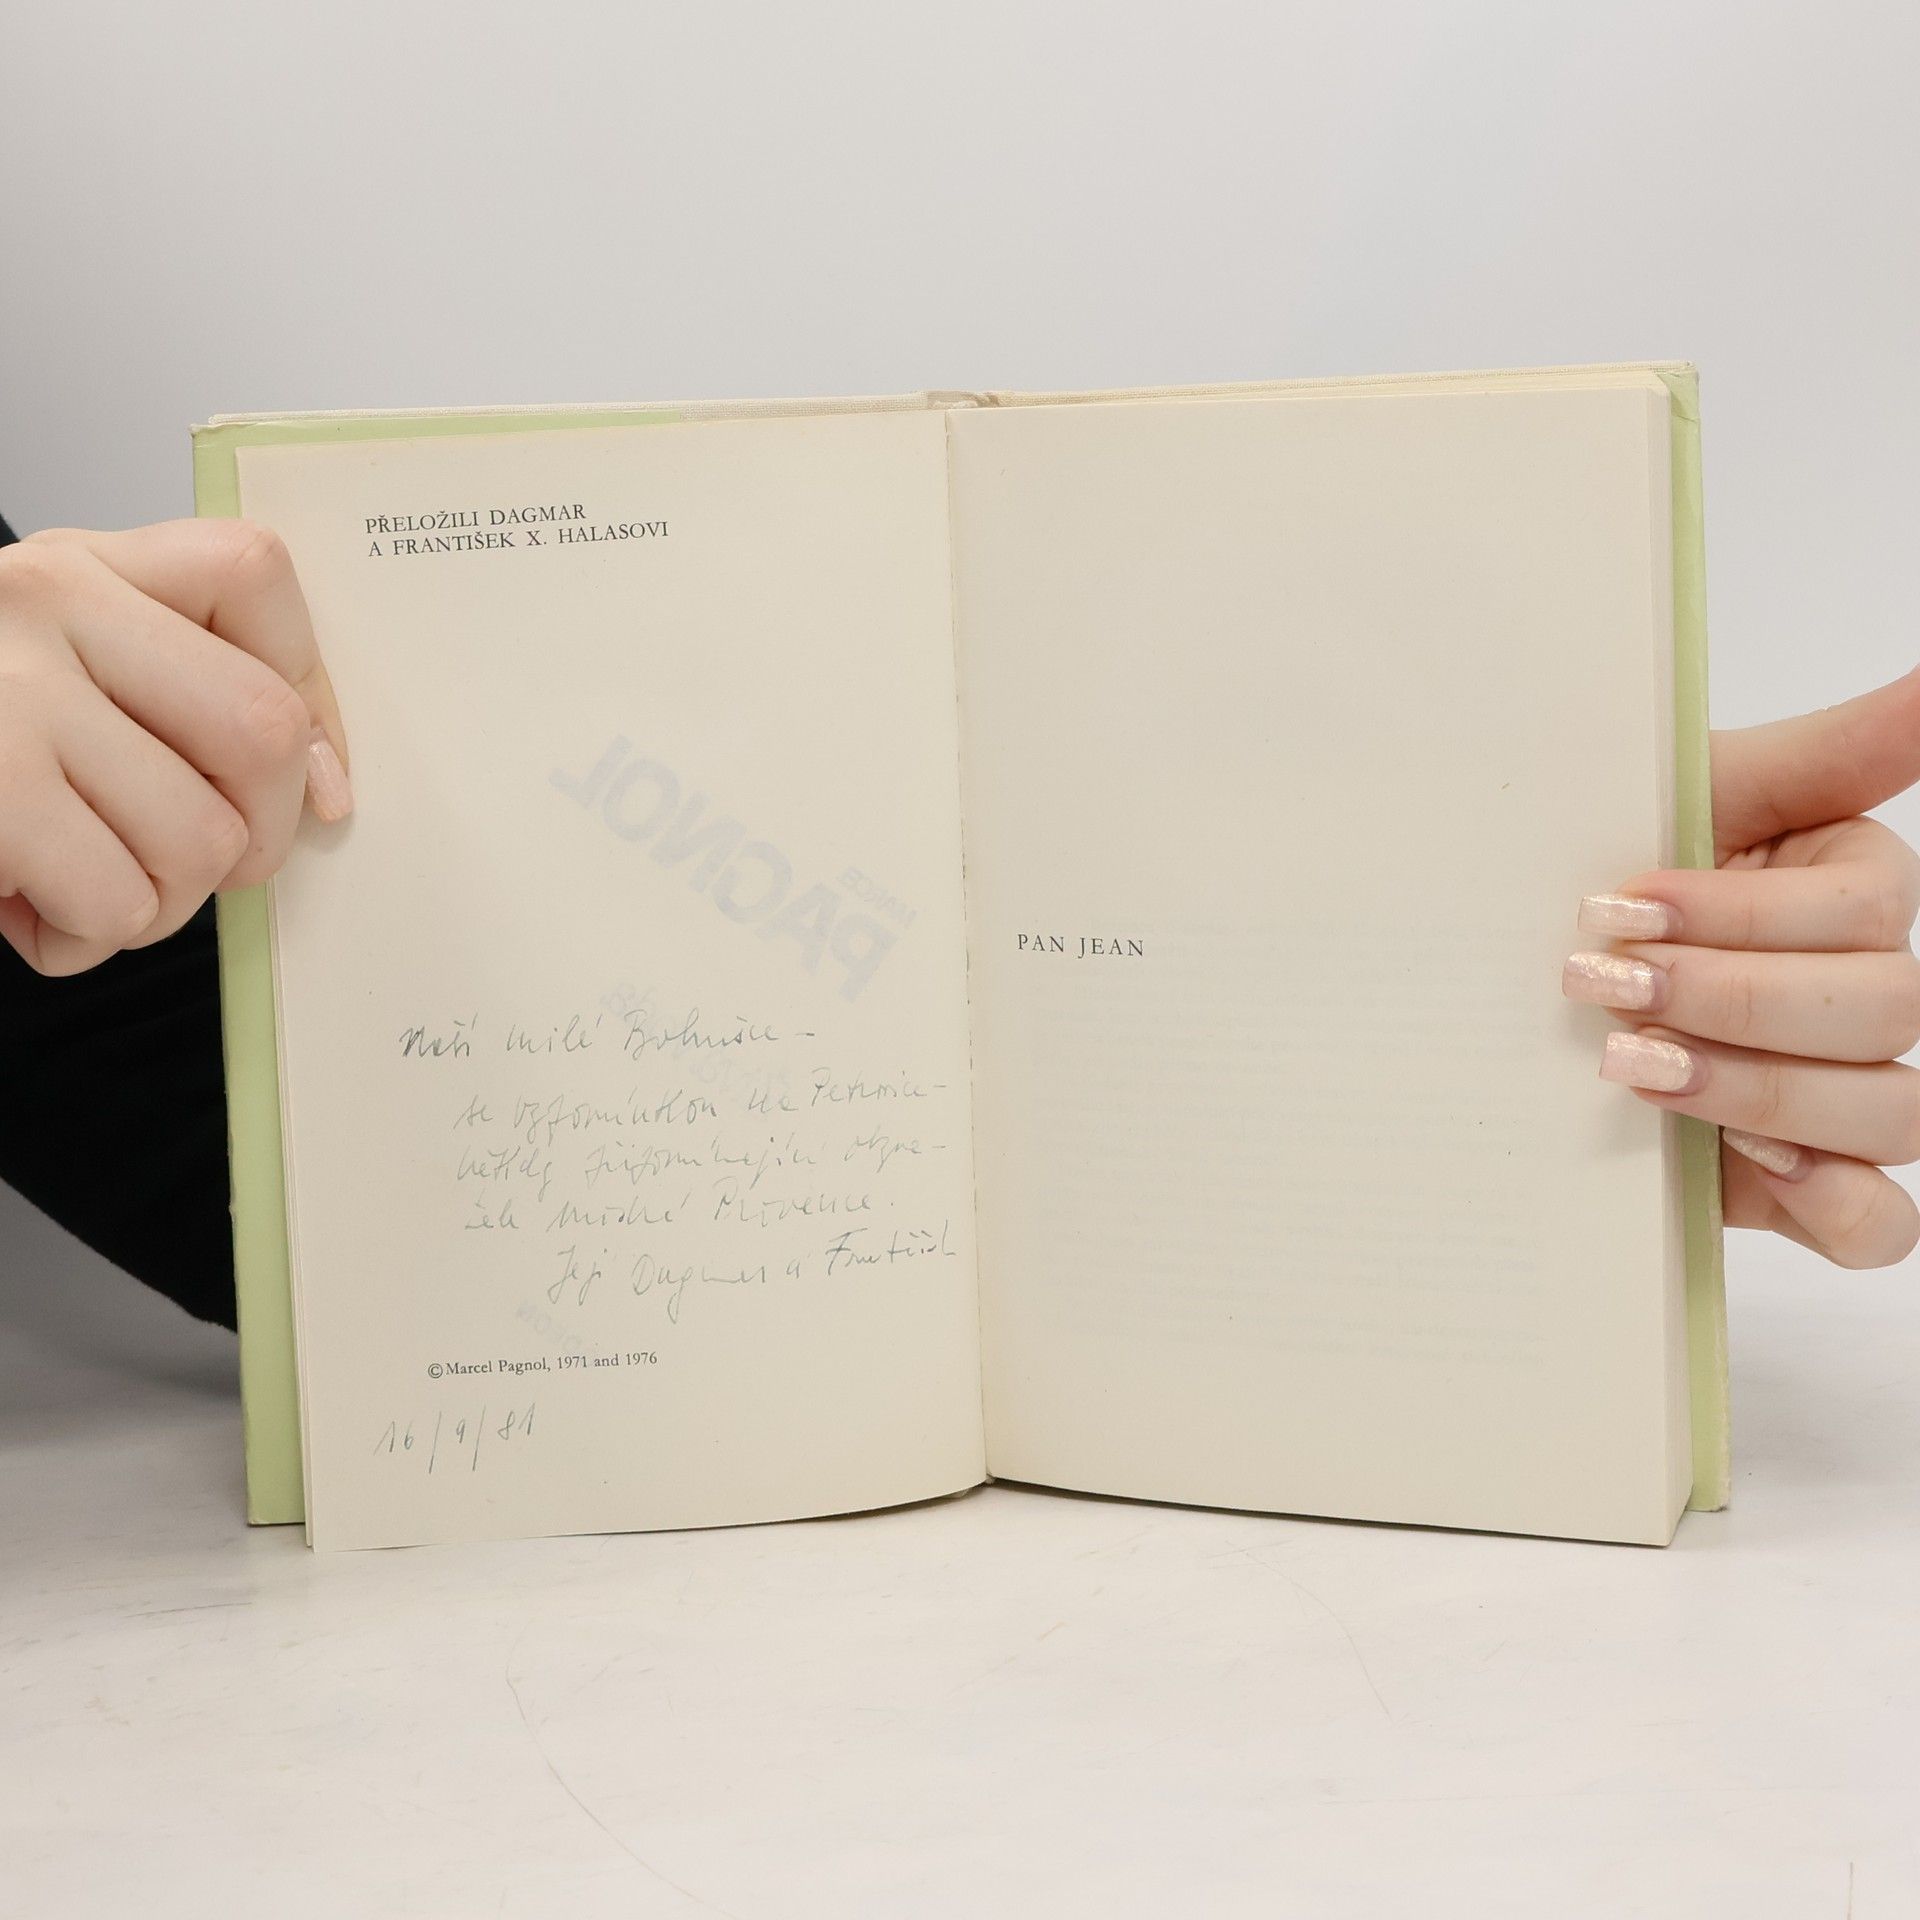 PŘELOŽILI DAGMAR
A FRANTIŠEK X. HALASOVI
PAGNOL
Naší milé Bohušce –
se vzpomínkou na Petrovice –
někdy připomínající obyče-
modré Provence.
Její Dagmar a František
© Marcel Pagnol, 1971 and 1976
16/9/81
PAN JEAN